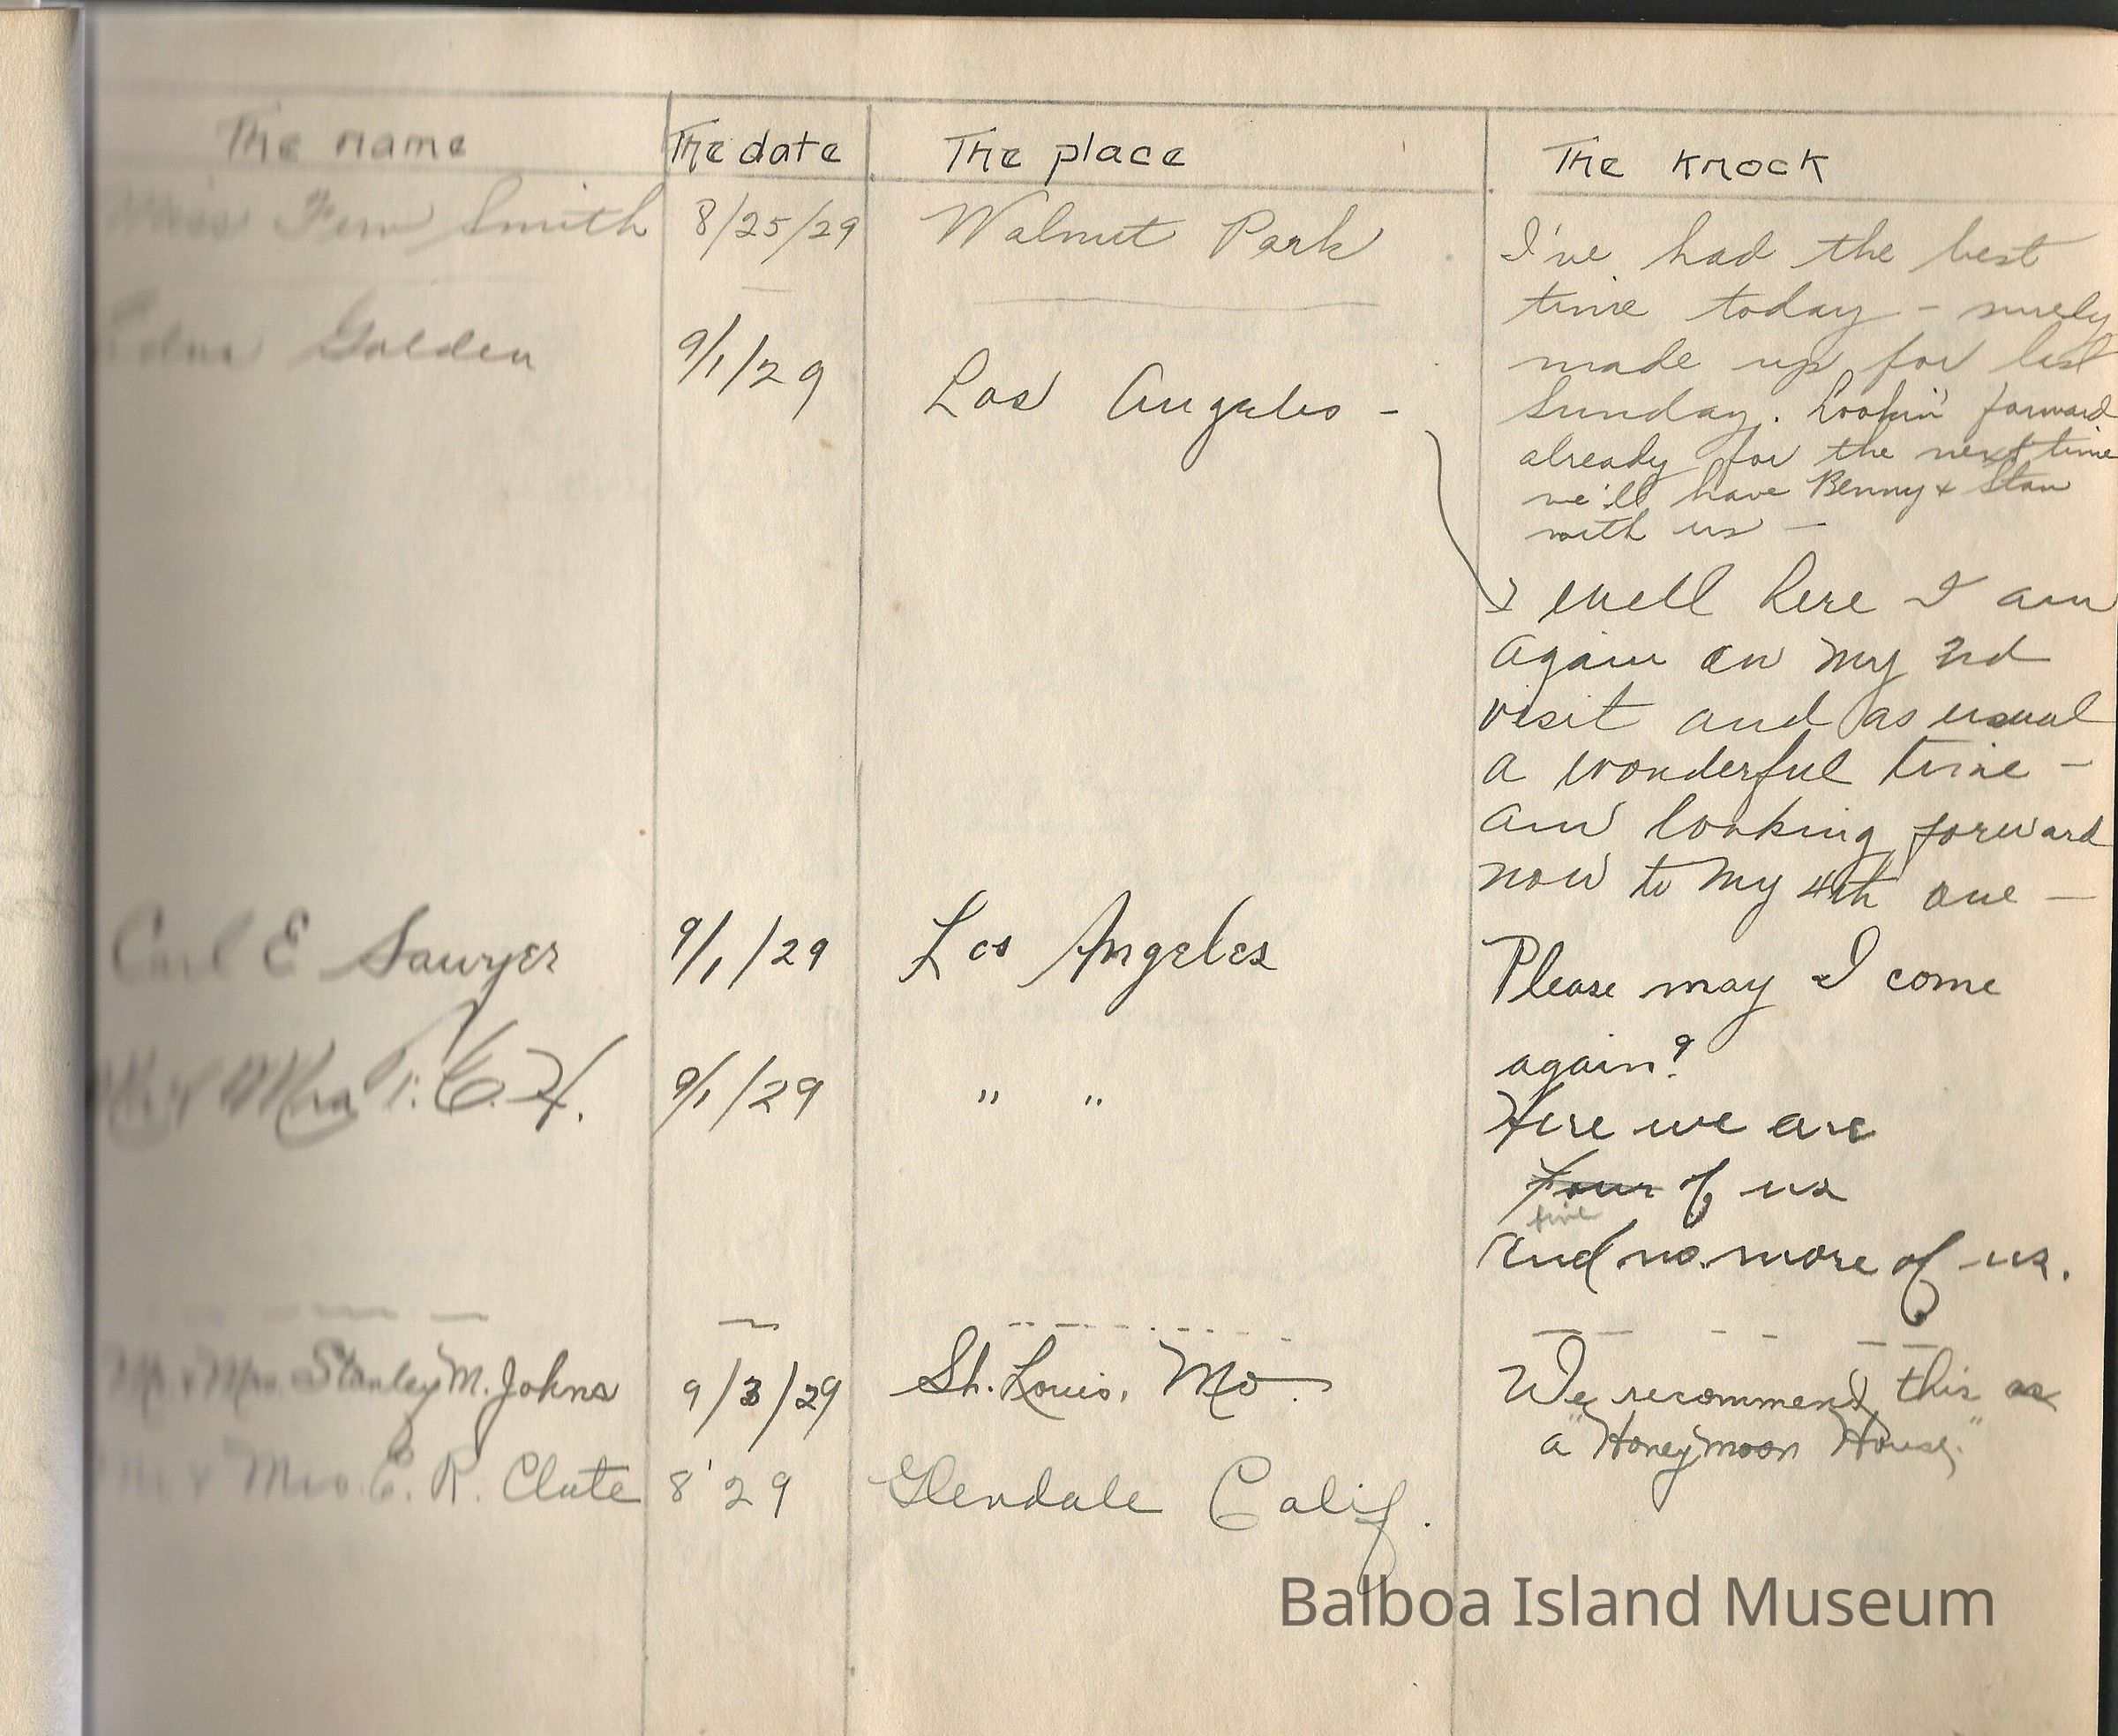 The name The date The place The knock
Miss Fern Smith 8/25/29 Walnut Park I've had the best
time today - surely
made up for last
Sunday. Lookin' forward
already for the next time
we'll have Benny & Stan
with us -
Edna Golden 9/1/29 Los Angeles -
Well here I am
again on my 3rd
visit and as usual
a wonderful time -
am looking forward
now to my 4th one -
Carl E Sawyer 9/1/29 Los Angeles Please may I come
again?
Mr & Mrs T. C. H. 9/1/29 " " Here we are
four of us
five
and no more of us.
Mr. & Mrs. Stanley M. Johns 9/3/29 St. Louis, Mo. We recommend this as
a "Honeymoon House."
Mr & Mrs. C. R. Clute 8'29 Glendale Calif.
Balboa Island Museum